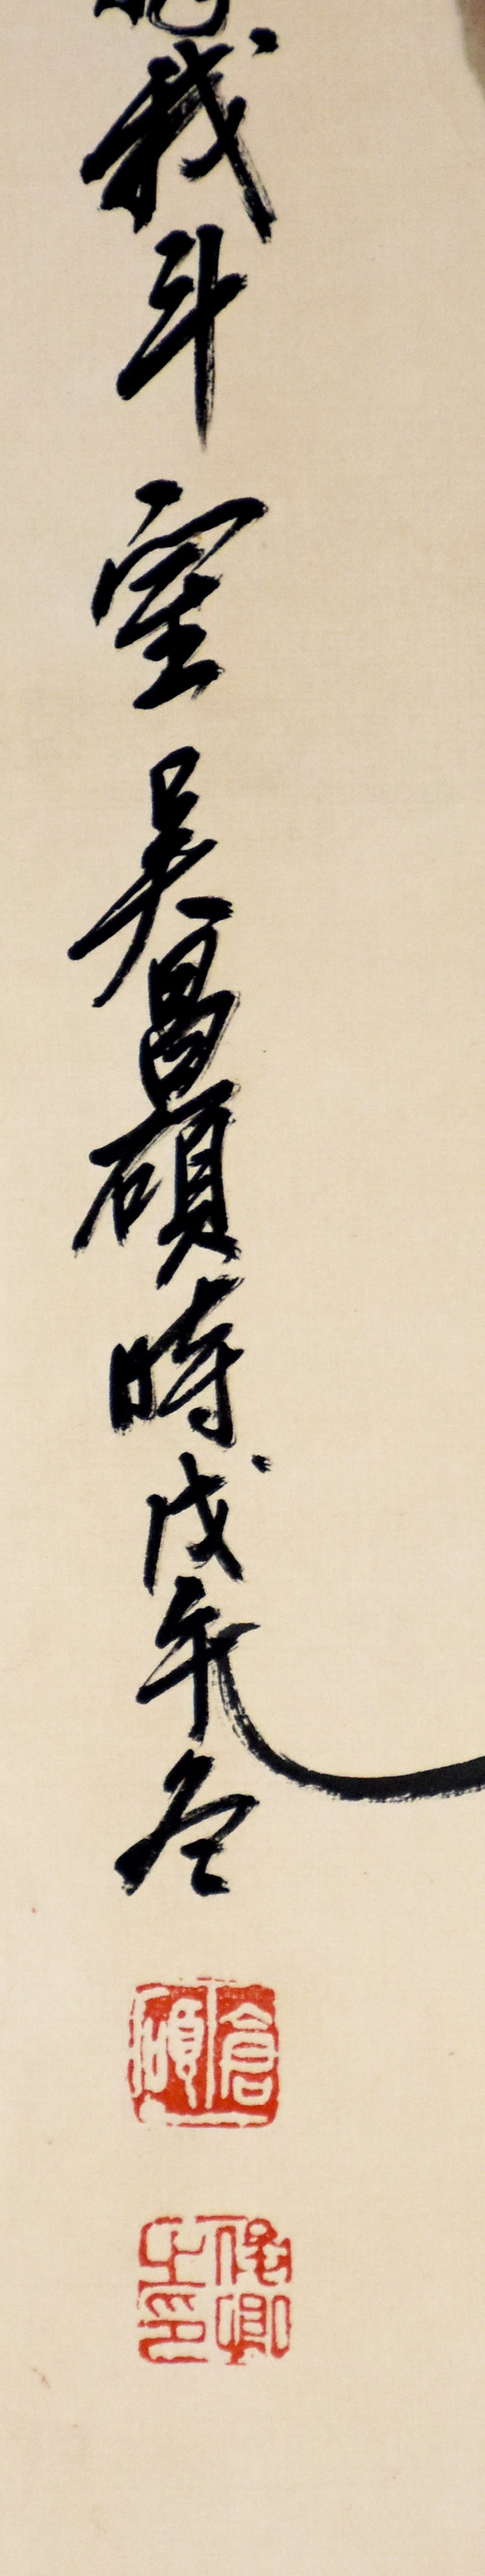 我斗室吳昌碩時戊午冬
倉碩
俊卿之印